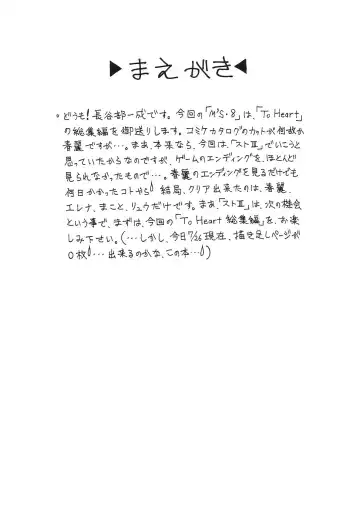 ▶まえがき◀
・どうも!長谷部一成です。今回の「M'S・8」は、「To Heart」
の総集編を御送りします。コミケカタログのカットが何故か
春麗ですが…。まあ、本来なら、今回は、「ストⅢ」でいこうと
思っていたからなのですが、ゲームのエンディングを、ほとんど
見られなかったもので…。春麗のエンディングを見るだけでも
何日かかったコトやら 結局、クリア出来たのは、春麗、
エレナ、まこと、リュウだけです。まあ、「ストⅢ」は、次の機会
という事で、まずは、今回の「To Heart 総集編」を、お楽
しみ下せい。(…しかし、今日7/26現在、描き足しページが
0枚 …出来るのかな、この本… )